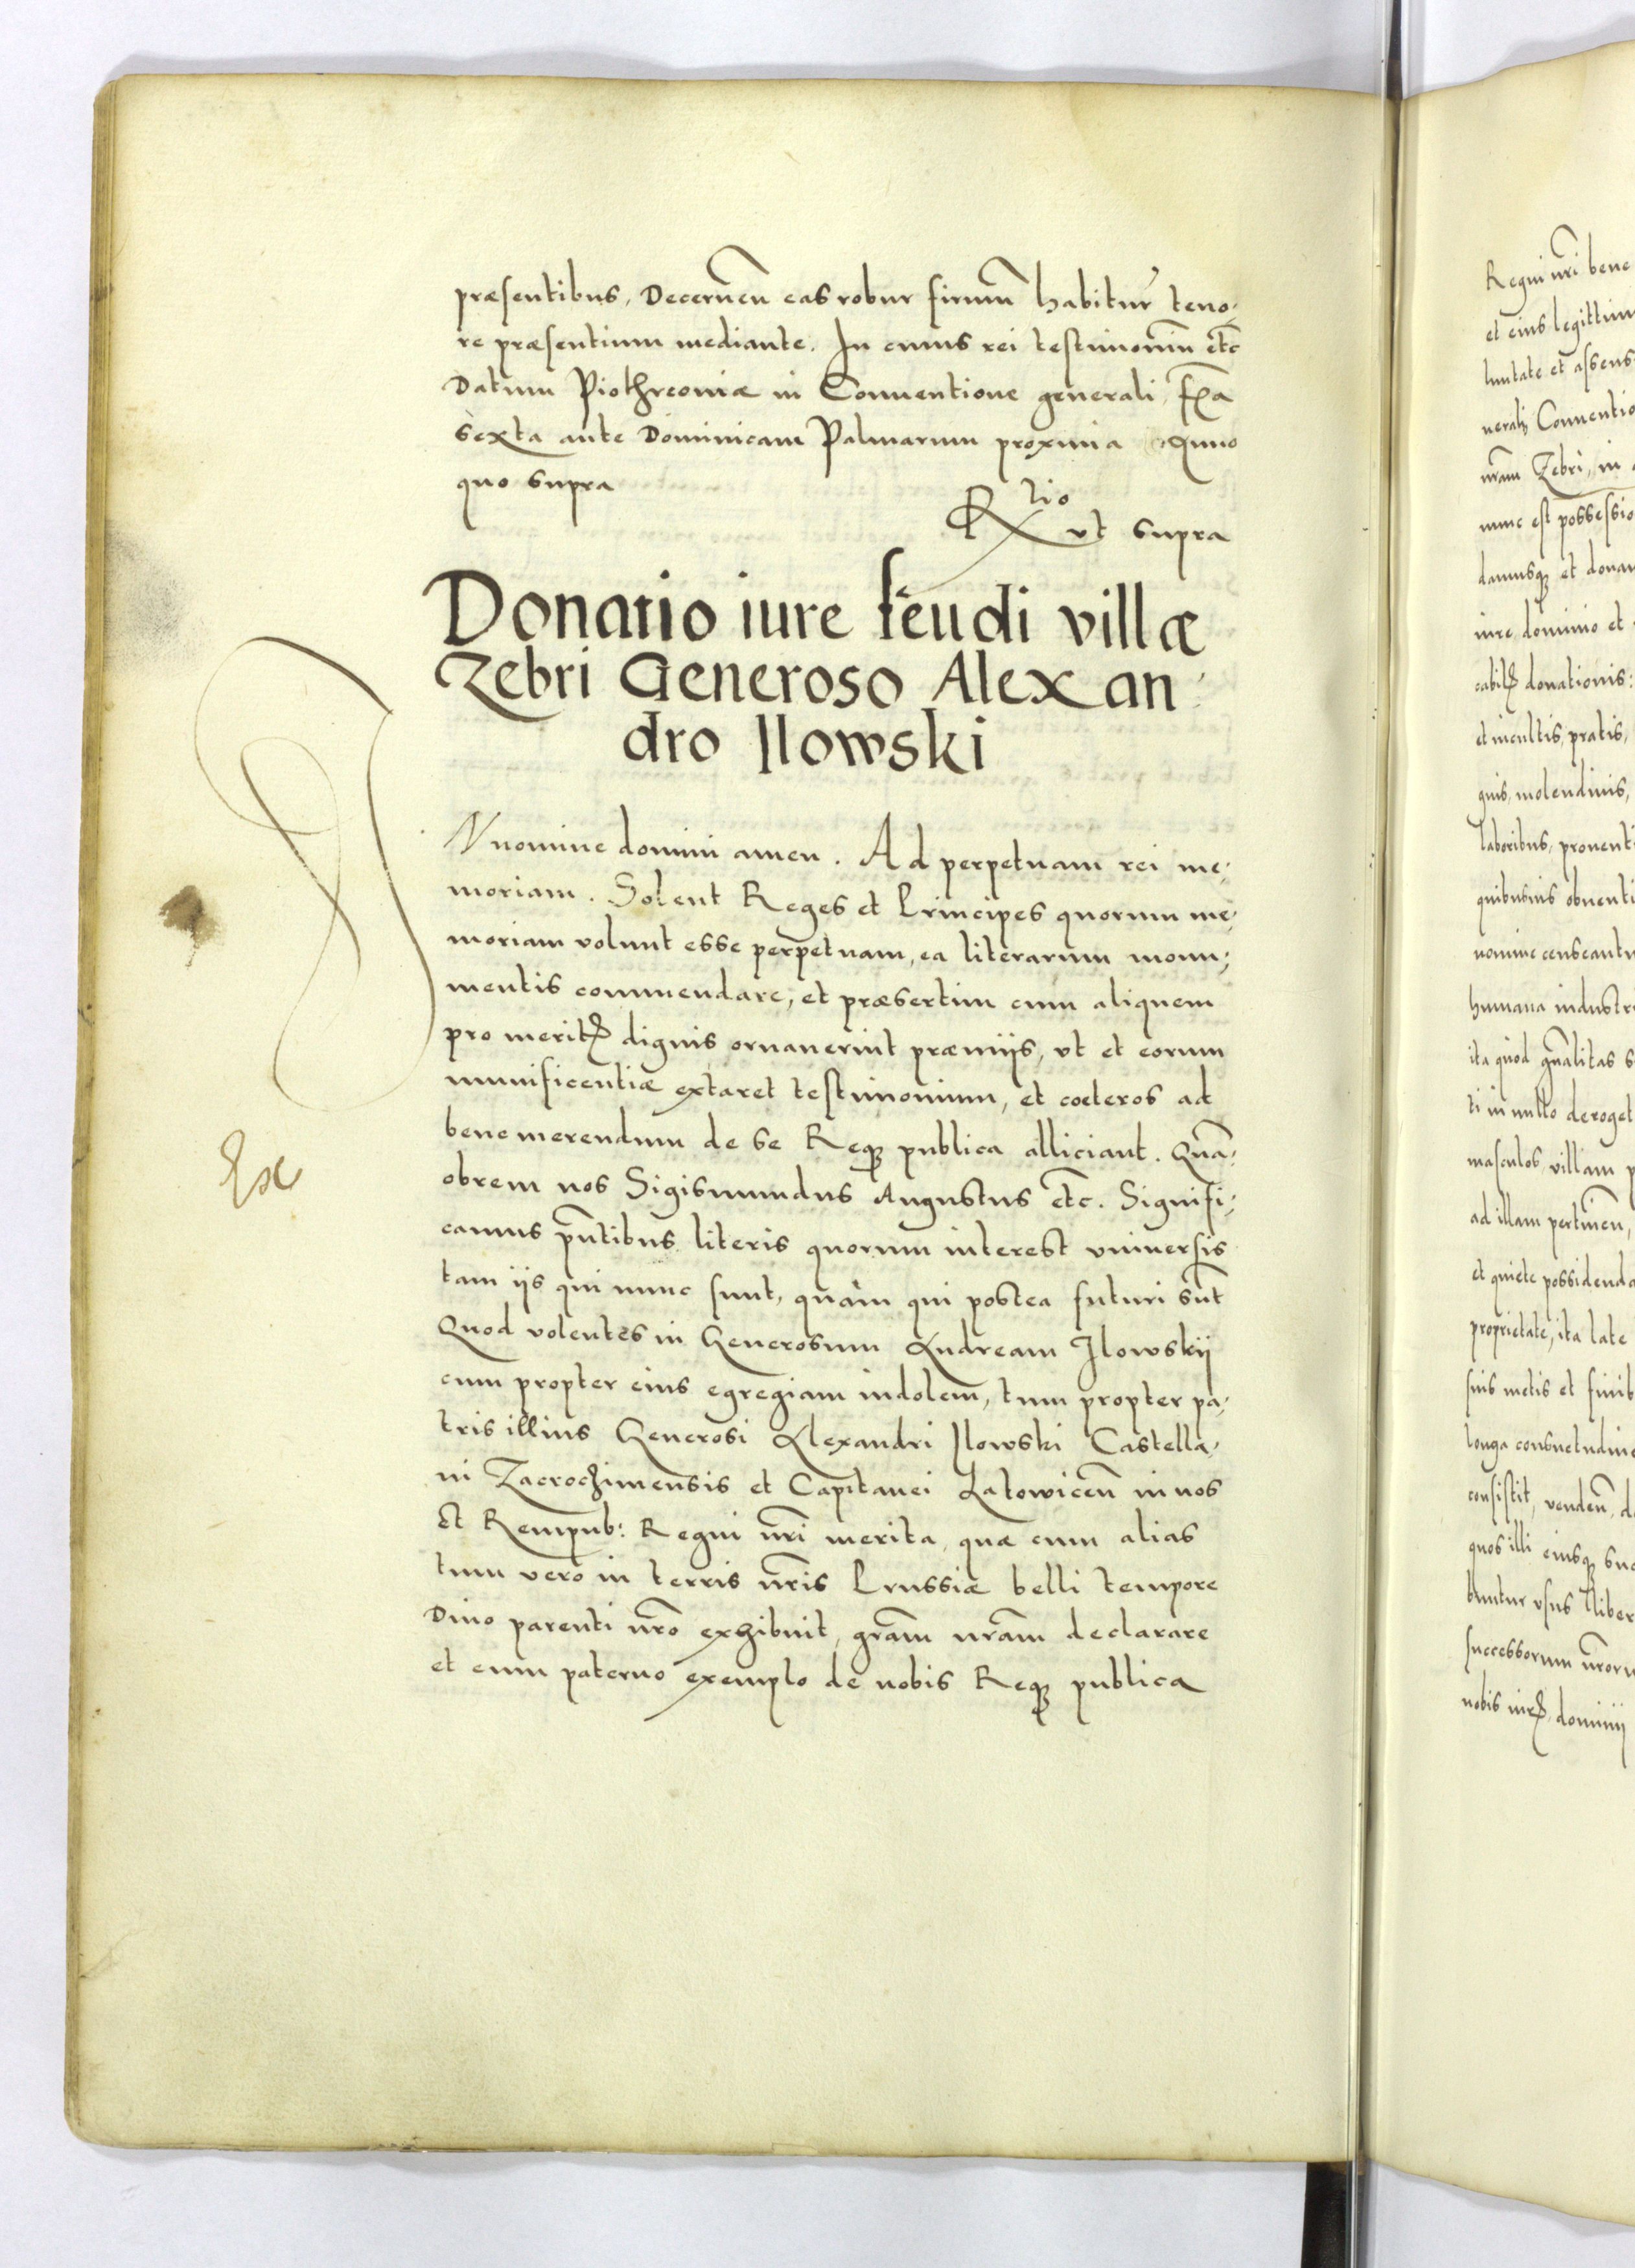 præsentibus, Decernen̄ eas robur firmum̄ habitur̄ teno,
re præsentium mediante. In cuius rei testimoniūm etc̄
Datum Piothrcouiæ in Conuentione generali, fr̄a
sexta ante Dominicam Palmarum proxima Anno
quo supra
Rtio
vt supra
Donatio iure feudi villæ
Zebri Generoso Alexan,
dro Ilowski
IN nomine domini amen. Ad perpetuam rei me,
moriam. Solent Reges et Principes quorum me,
moriam volunt esse perpetuam, ea literarum monu,
mentis commendare, et præsertim cum aliquem
pro meritꝭ dignis ornauerint præmijs, vt et eorum
munificentiæ extaret testimonium, et cœteros ad
bene merendum de se Reqꝫ publica alliciant. Quā,
obrem nos Sigismundus Augustus etc̄. Signifi,
camus pn̄tibus literis quorum interest vniuersis
tam ijs qui nunc sunt, quàm qui postea futuri sūnt
Quod volentes in Generosum Andream Ilowskij
cum propter eius egregiam indolem, tum propter pa,
tris illius Generosi Alexandri Ilowski Castella,
ni Zacrochimensis et Capitanei Latowiceñ in nos
Et Rempub: Regni nr̄i merita, quæ cum alias
tum vero in terris nr̄is Prussiæ belli tempore
Diuo parenti nr̄o exhibuit, gr̄am nr̄am declarare
et eum paterno exemplo de nobis Reqꝫ publica
Ex
Regni nr̄i bene
et eius legittim
luntate et assens
neralꝫ Conuentio
nr̄am Zebri, in
nunc est possessio
damusqꝫ et donam
iure dominio et
cabilꝭ donationis:
et incultis, pratis,
quis, molendinis,
laboribus, prouenti
quibusuis obuenti
nomine censeantu
humana industri
ita quod gn̄alitas s
ti in nullo deroget
masculos, villam p
ad illam pertinen̄,
et quiete possidenda
proprietate, ita late
suis metis et finib
longa consuetudine
consistit, venden̄, d
quos illi eiusqꝫ suc
buntur vsus liber
successorum nr̄oru
nobis iurꝭ, dominij